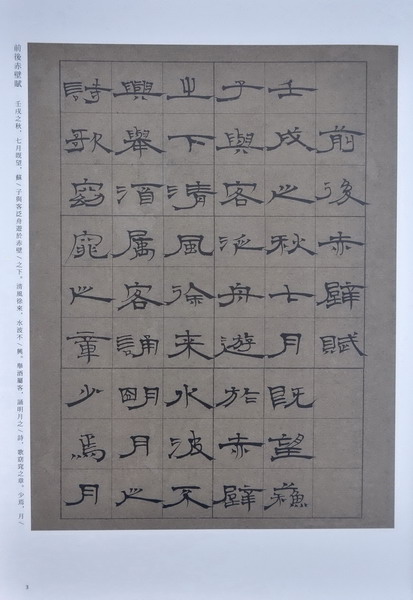 前後赤壁賦
壬戌之秋七月既望蘇
子與客泛舟遊於赤壁
之下清風徐來水波不
興舉酒屬客誦明月之
詩歌窈窕之章少焉月
前後赤壁賦 壬戌之秋，七月既望，蘇/子與客泛舟遊於赤壁/之下。清風徐來，水波不/興。舉酒屬客，誦明月之/詩，歌窈窕之章。少焉，月/